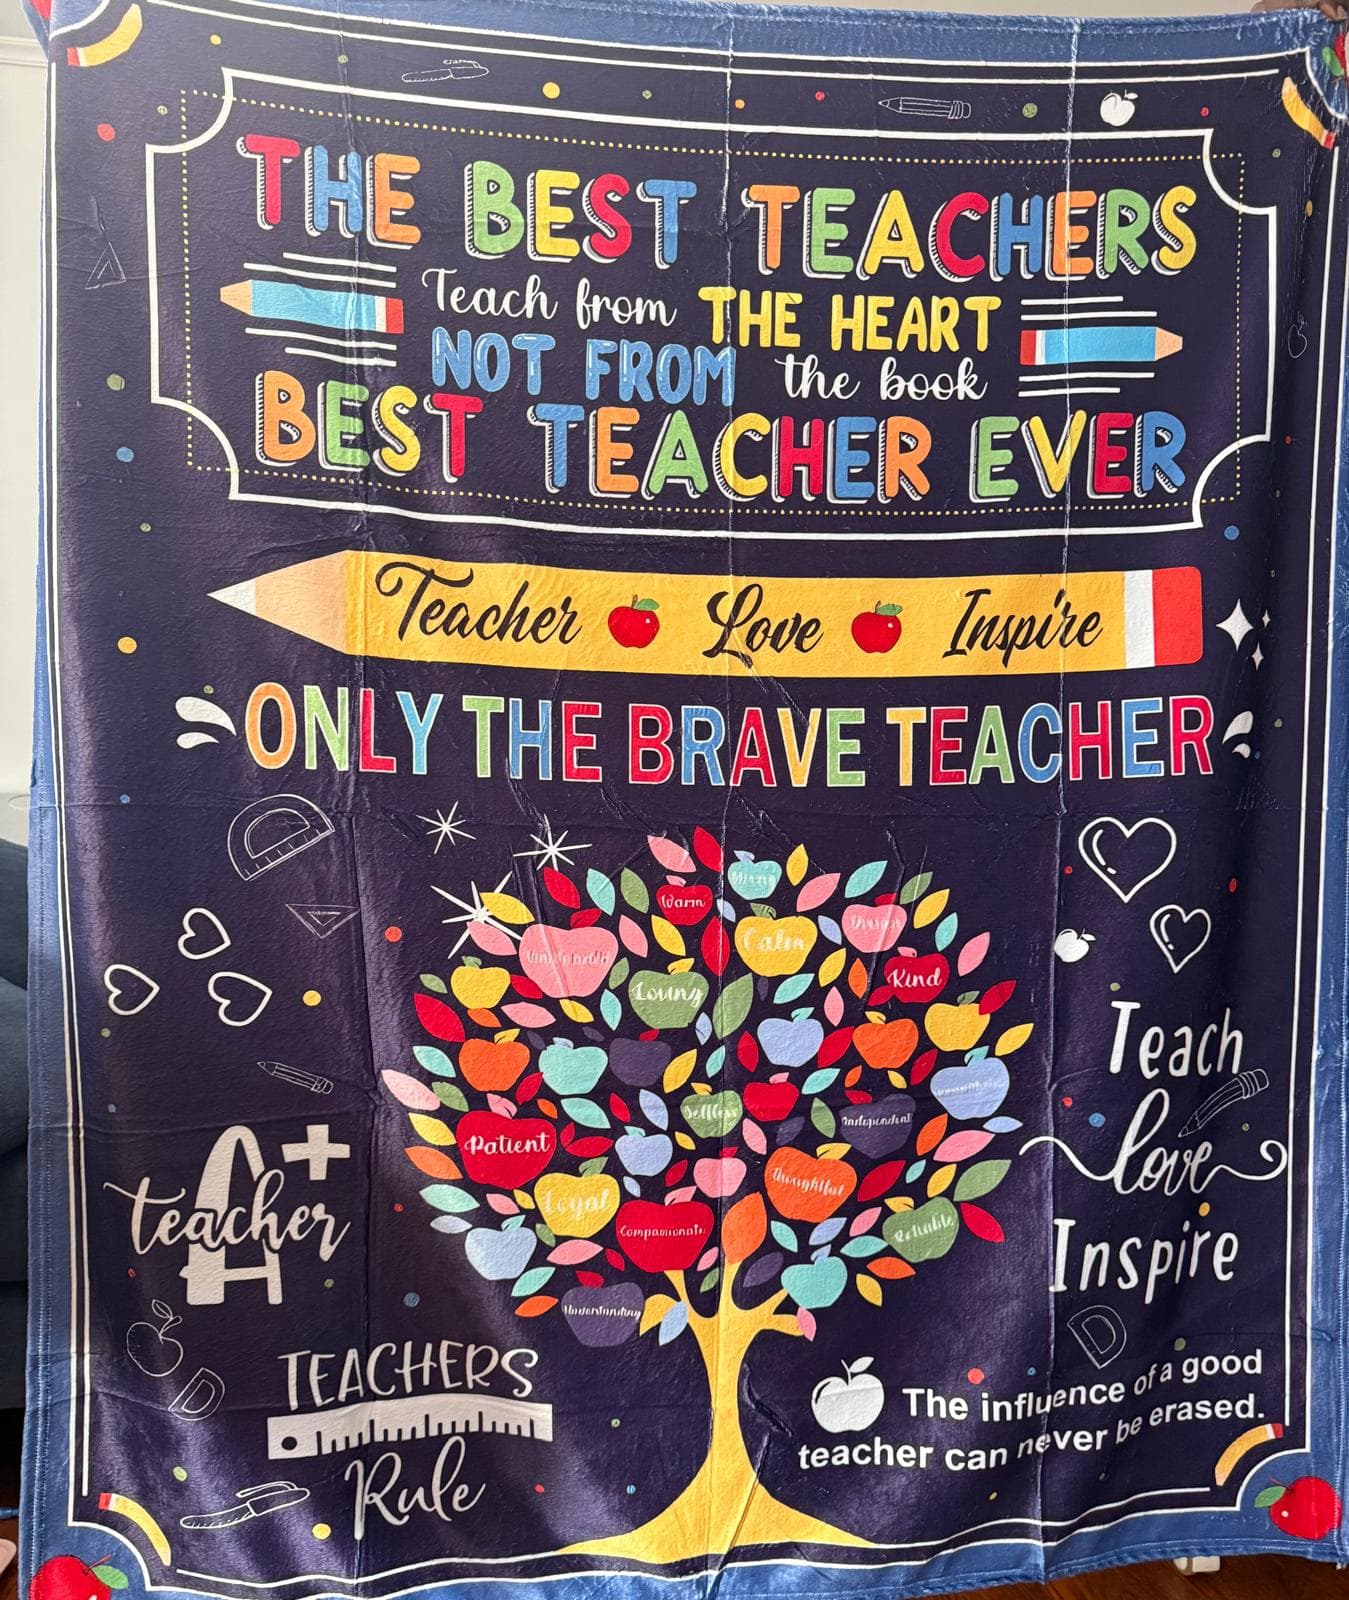 THE BEST TEACHERS
Teach from THE HEART
NOT FROM the book
BEST TEACHER EVER
Teacher Love Inspire
ONLY THE BRAVE TEACHER
Warm
Calm
Loving
Kind
Selfless
Independent
Patient
Thoughtful
Loyal
Compassionate
Reliable
Understanding
A+
teacher
Teach
love
Inspire
TEACHERS
Rule
The influence of a good
teacher can never be erased.